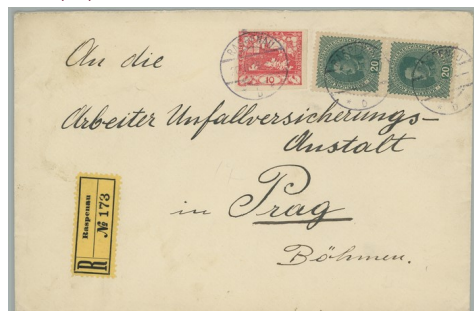 An die
Arbeiter Unfallversicherungs-
Anstalt
in Prag
Böhmen.
R
Raspenau
№ 173
10
20
20